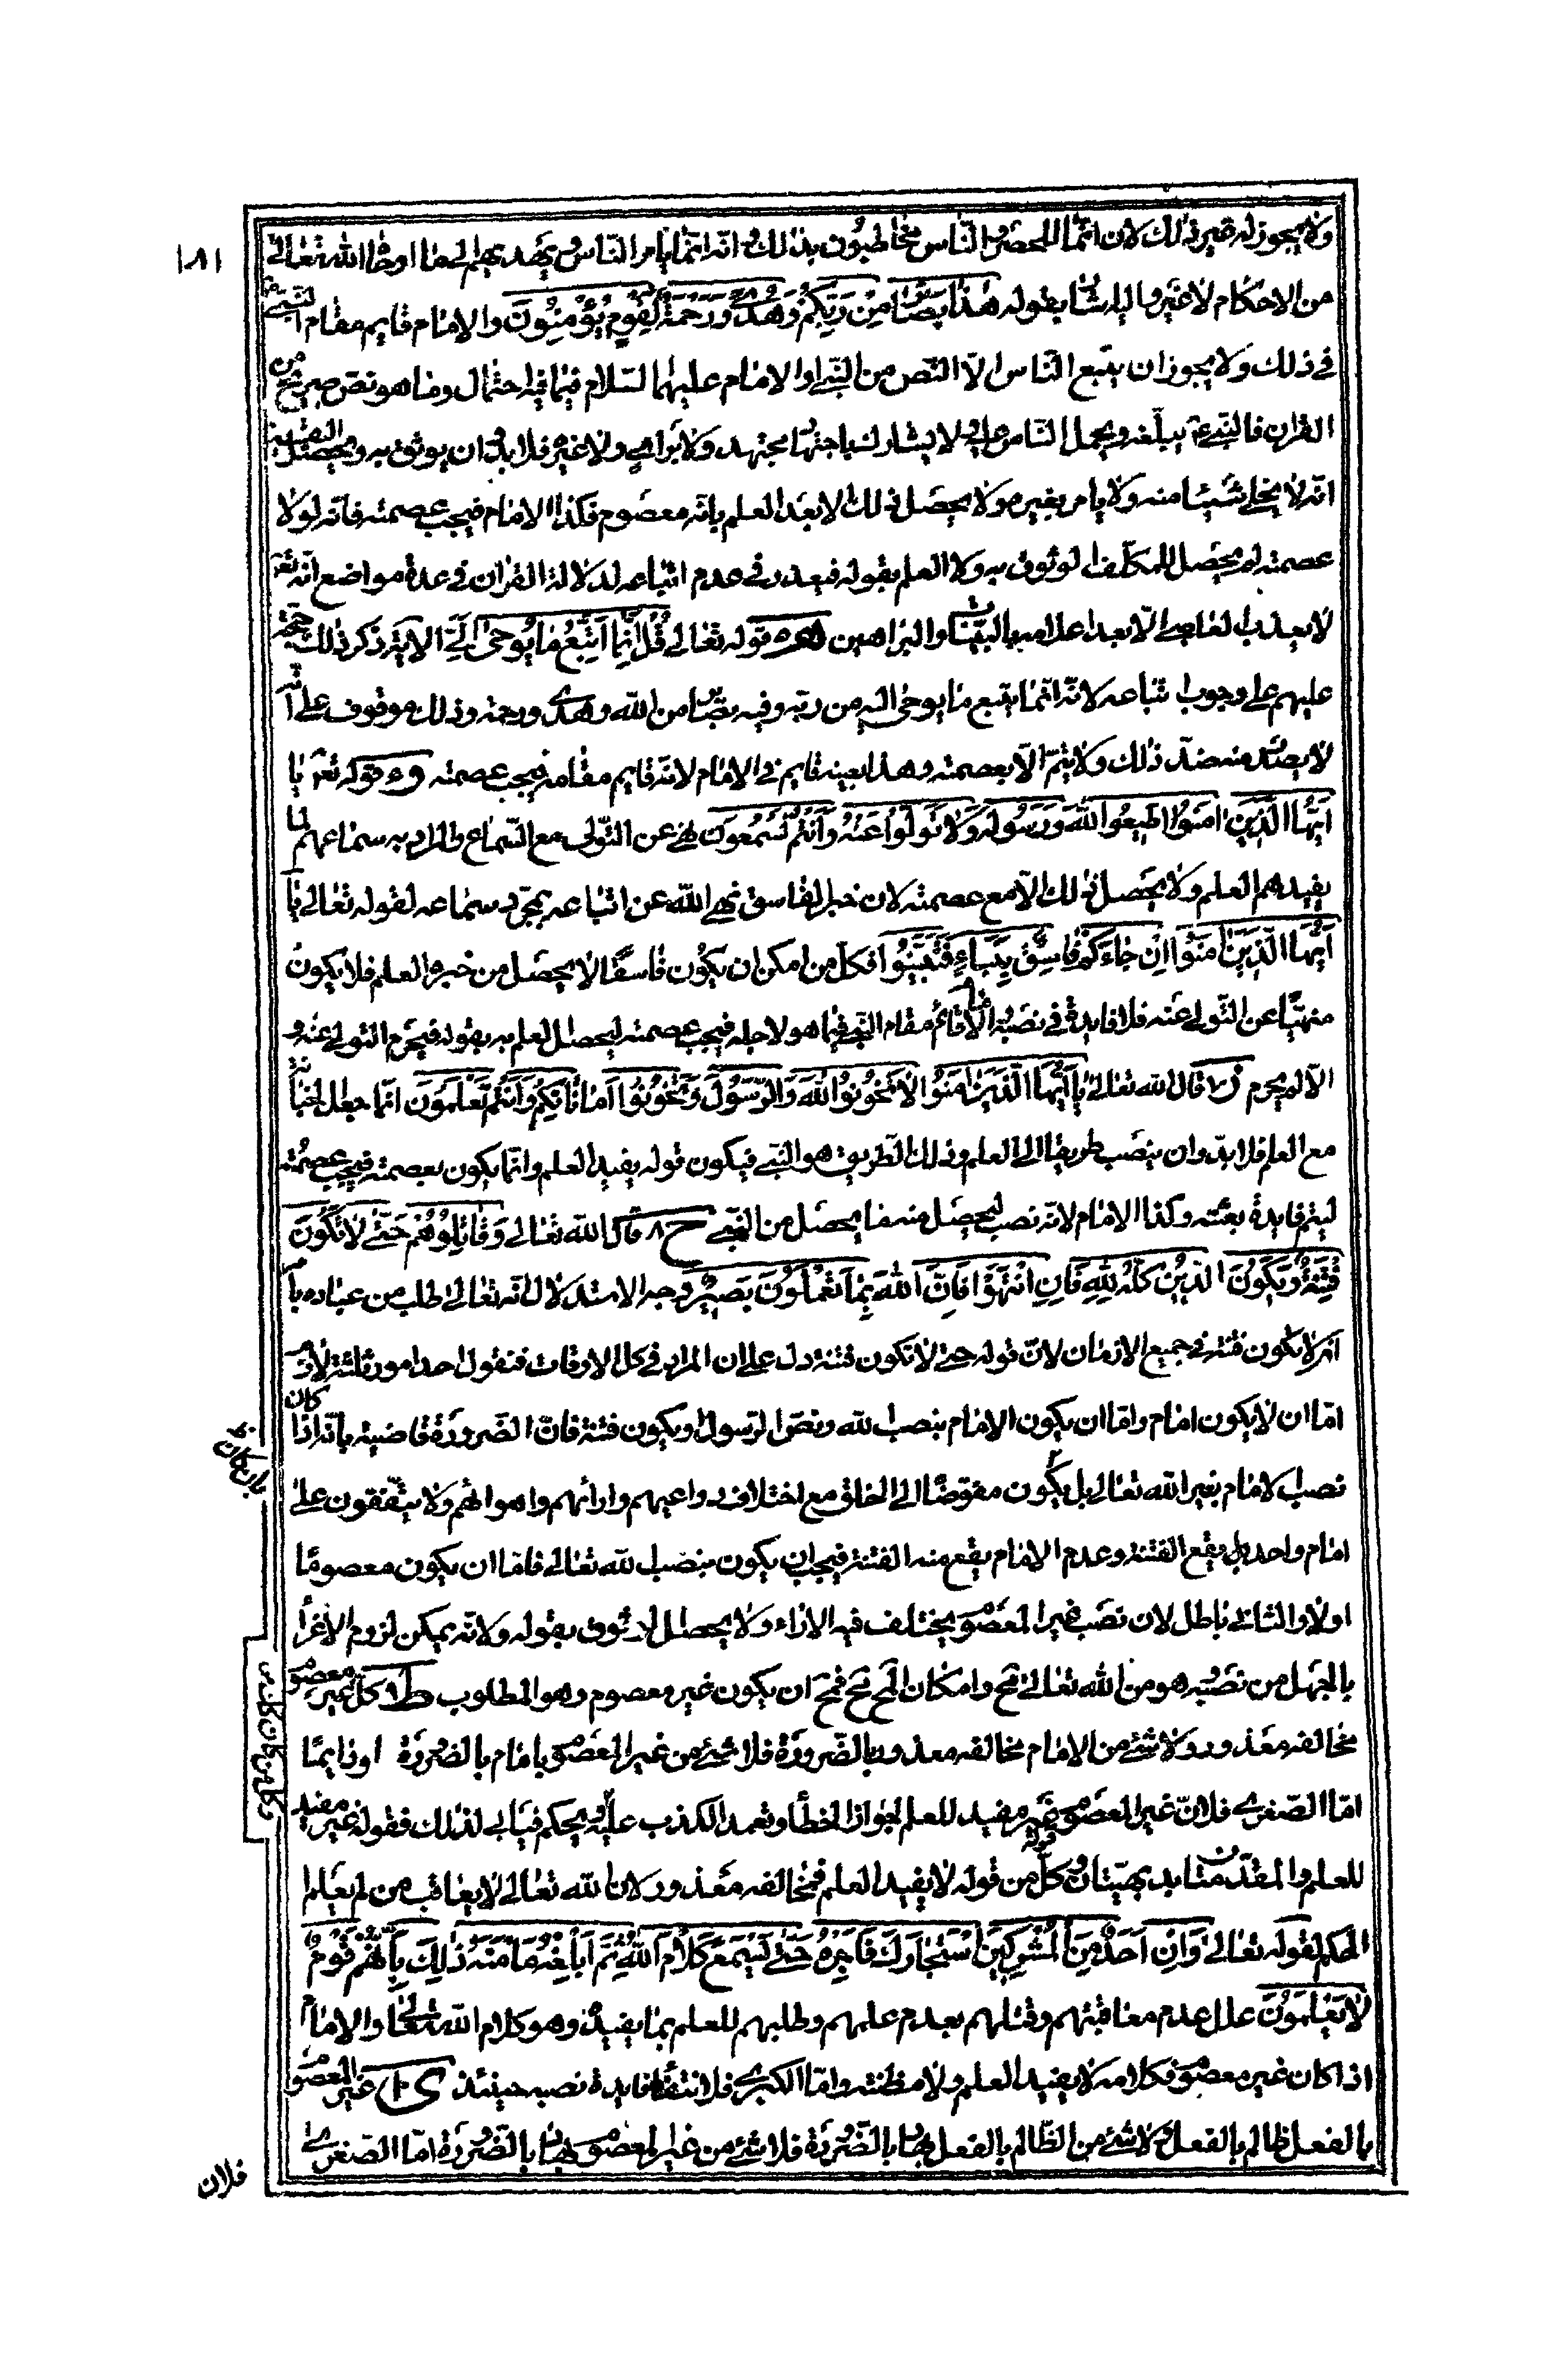 ١٨١
ولا يجوز له غير ذلك لان انما للحصر والناس مخاطبون بذلك وانه انما يامر الناس ويهديهم الى ما اوحاه الله تعالى
من الاحكام لا غير واليه اشار بقوله هذا بصائر من ربكم وهدى ورحمة لقوم يؤمنون والامام قايم مقام النبي
في ذلك ولا يجوز ان يتبع الناس الا النص من النبي او الامام عليهما السلام فيما فيه احتمال وما هو نص صريح من
القران فالنبي يبلغه ويحمل الناس عليه ولا يشارك باجتهاد مجتهد ولا براى ولا غيره فلا بد ان يوثق به ويحصل اليقين
انه لا يخل شيئا منه ولا يامر بغيره ولا يحصل ذلك الا بعد العلم بانه معصوم فكذا الامام فيجب عصمته فانه لولا
عصمته لم يحصل للمكلف الوثوق به ولا العلم بقوله فيعذر في عدم اتباعه لدلالة القران في عدة مواضع انه تعالى
لا يعذب العاصي الا بعد اعلامه بالبينات والبراهين قوله تعالى قُلْ اِنَّمَا اَتَّبِعُ مَا يُوحىٰ اِلَيَّ الاية ذكر ذلك حجة
عليهم على وجوب اتباعه لانه انما يتبع ما يوحى اليه من ربه وفيه بصائر من الله وهدى ورحمة وذلك موقوف على انه
لا يصدر منه ضد ذلك ولا يتم الا بعصمته وهذا بعينه قايم في الامام لانه قايم مقامه فيجب عصمته و قوله تعالى يا
اَيُّهَا الَّذِينَ امَنُوا اَطِيعُوا اللهَ وَرَسُولَهُ وَلَا تَوَلَّوْا عَنْهُ وَاَنْتُمْ تَسْمَعُونَ نهى عن التولى مع السماع والمراد به سماعهم لما
يفيدهم العلم ولا يحصل ذلك الا مع عصمته لان خبر الفاسق نهى الله عن اتباعه بمجرد سماعه لقوله تعالى يا
اَيُّهَا الَّذِينَ امَنُوا اِنْ جَاءَكُمْ فَاسِقٌ بِنَبَاءٍ فَتَبَيَّنُوا فكل من امكن ان يكون فاسقا لا يحصل من خبره العلم فلا يكون
منهيا عن التولى عنه فلا فايدة في نصبه الامام قائم مقام النبي فيما هو لاجله فيجب عصمته ليحصل العلم به بقوله فيحرم التولى عنه و
الا لم يحرم ز٧ قال الله تعالى يَا اَيُّهَا الَّذِينَ امَنُوا لَا تَخُونُوا اللهَ وَالرَّسُولَ وَتَخُونُوا اَمَانَاتِكُمْ وَاَنْتُمْ تَعْلَمُونَ انما جعل الخيانة
مع العلم فلا بد وان ينصب طريقا الى العلم وذلك الطريق هو النبي فيكون قوله يفيد العلم وانما يكون بعصمته فيجب عصمته
ليتم فايدة بعثته وكذا الامام لانه نصب ليحصل منه ما يحصل من النبي ح٨ قال الله تعالى وَقَاتِلُوهُمْ حَتّٰى لَا تَكُونَ
فِتْنَةٌ وَيَكُونَ الدِّينُ كُلُّهُ لِلهِ فَاِنِ انْتَهَوْا فَاِنَّ اللهَ بِمَا تَعْمَلُونَ بَصِيرٌ وجه الاستدلال انه تعالى طلب من عباده باسرهم
انه لا يكون فتنة في جميع الازمان لان قوله حتى لا تكون فتنة دل على ان المراد في كل الاوقات فنقول احد امور ثلثة لازم
اما ان لا يكون امام واما ان يكون الامام بنصب الله ونص الرسول او يكون فتنة فان الضرورة قاضية بانه اذا كان
نصب الامام بغير الله تعالى بل يكون مفوضا الى الخلق مع اختلاف دواعيهم وارائهم واهوائهم ولا يتفقون على
امام واحد بل يقع الفتنة وعدم الامام يقع منه الفتنة فيجب ان يكون بنصب الله تعالى فاما ان يكون معصوما
او لا والثاني باطل لان نصب غير المعصوم يختلف فيه الاراء ولا يحصل الوثوق بقوله ولانه يمكن لزوم الاغراء
بالجهل من نصبه هو من الله تعالى مح وامكان المح مح فمح ان يكون غير معصوم وهو المطلوب ط٩ كل غير معصوم
مخالفه معذور ولا شئ من الامام مخالفه معذور بالضرورة فلا شئ من غير المعصوم بامام بالضرورة او دايما
اما الصغرى فلان غير المعصوم قوله غير مفيد للعلم لجواز الخطأ وتعمد الكذب عليه فقوله غير مفيد
للعلم والمقدمتان بديهيتان وكل من قوله لا يفيد العلم فمخالفه معذور لان الله تعالى لا يعاقب من لم يعلم
الحكم لقوله تعالى وَاِنْ اَحَدٌ مِنَ الْمُشْرِكِينَ اسْتَجَارَكَ فَاَجِرْهُ حَتّٰى يَسْمَعَ كَلَامَ اللهِ ثُمَّ اَبْلِغْهُ مَأْمَنَهُ ذٰلِكَ بِاَنَّهُمْ قَوْمٌ
لَا يَعْلَمُونَ علل عدم معاقبتهم وقتلهم بعدم علمهم وطلبهم للعلم بما يفيده وهو كلام الله تعالى والامام
اذا كان غير معصوم فكلامه لا يفيد العلم ولا مظنته واما الكبرى فلانتفاء فايدة نصبه حينئذ ى١٠ غير المعصوم
بالفعل ظالم بالفعل ولا شئ من الظالم بالفعل بهاد بالضرورة فلا شئ من غير المعصوم بهاد بالضرورة اما الصغرى
فلان